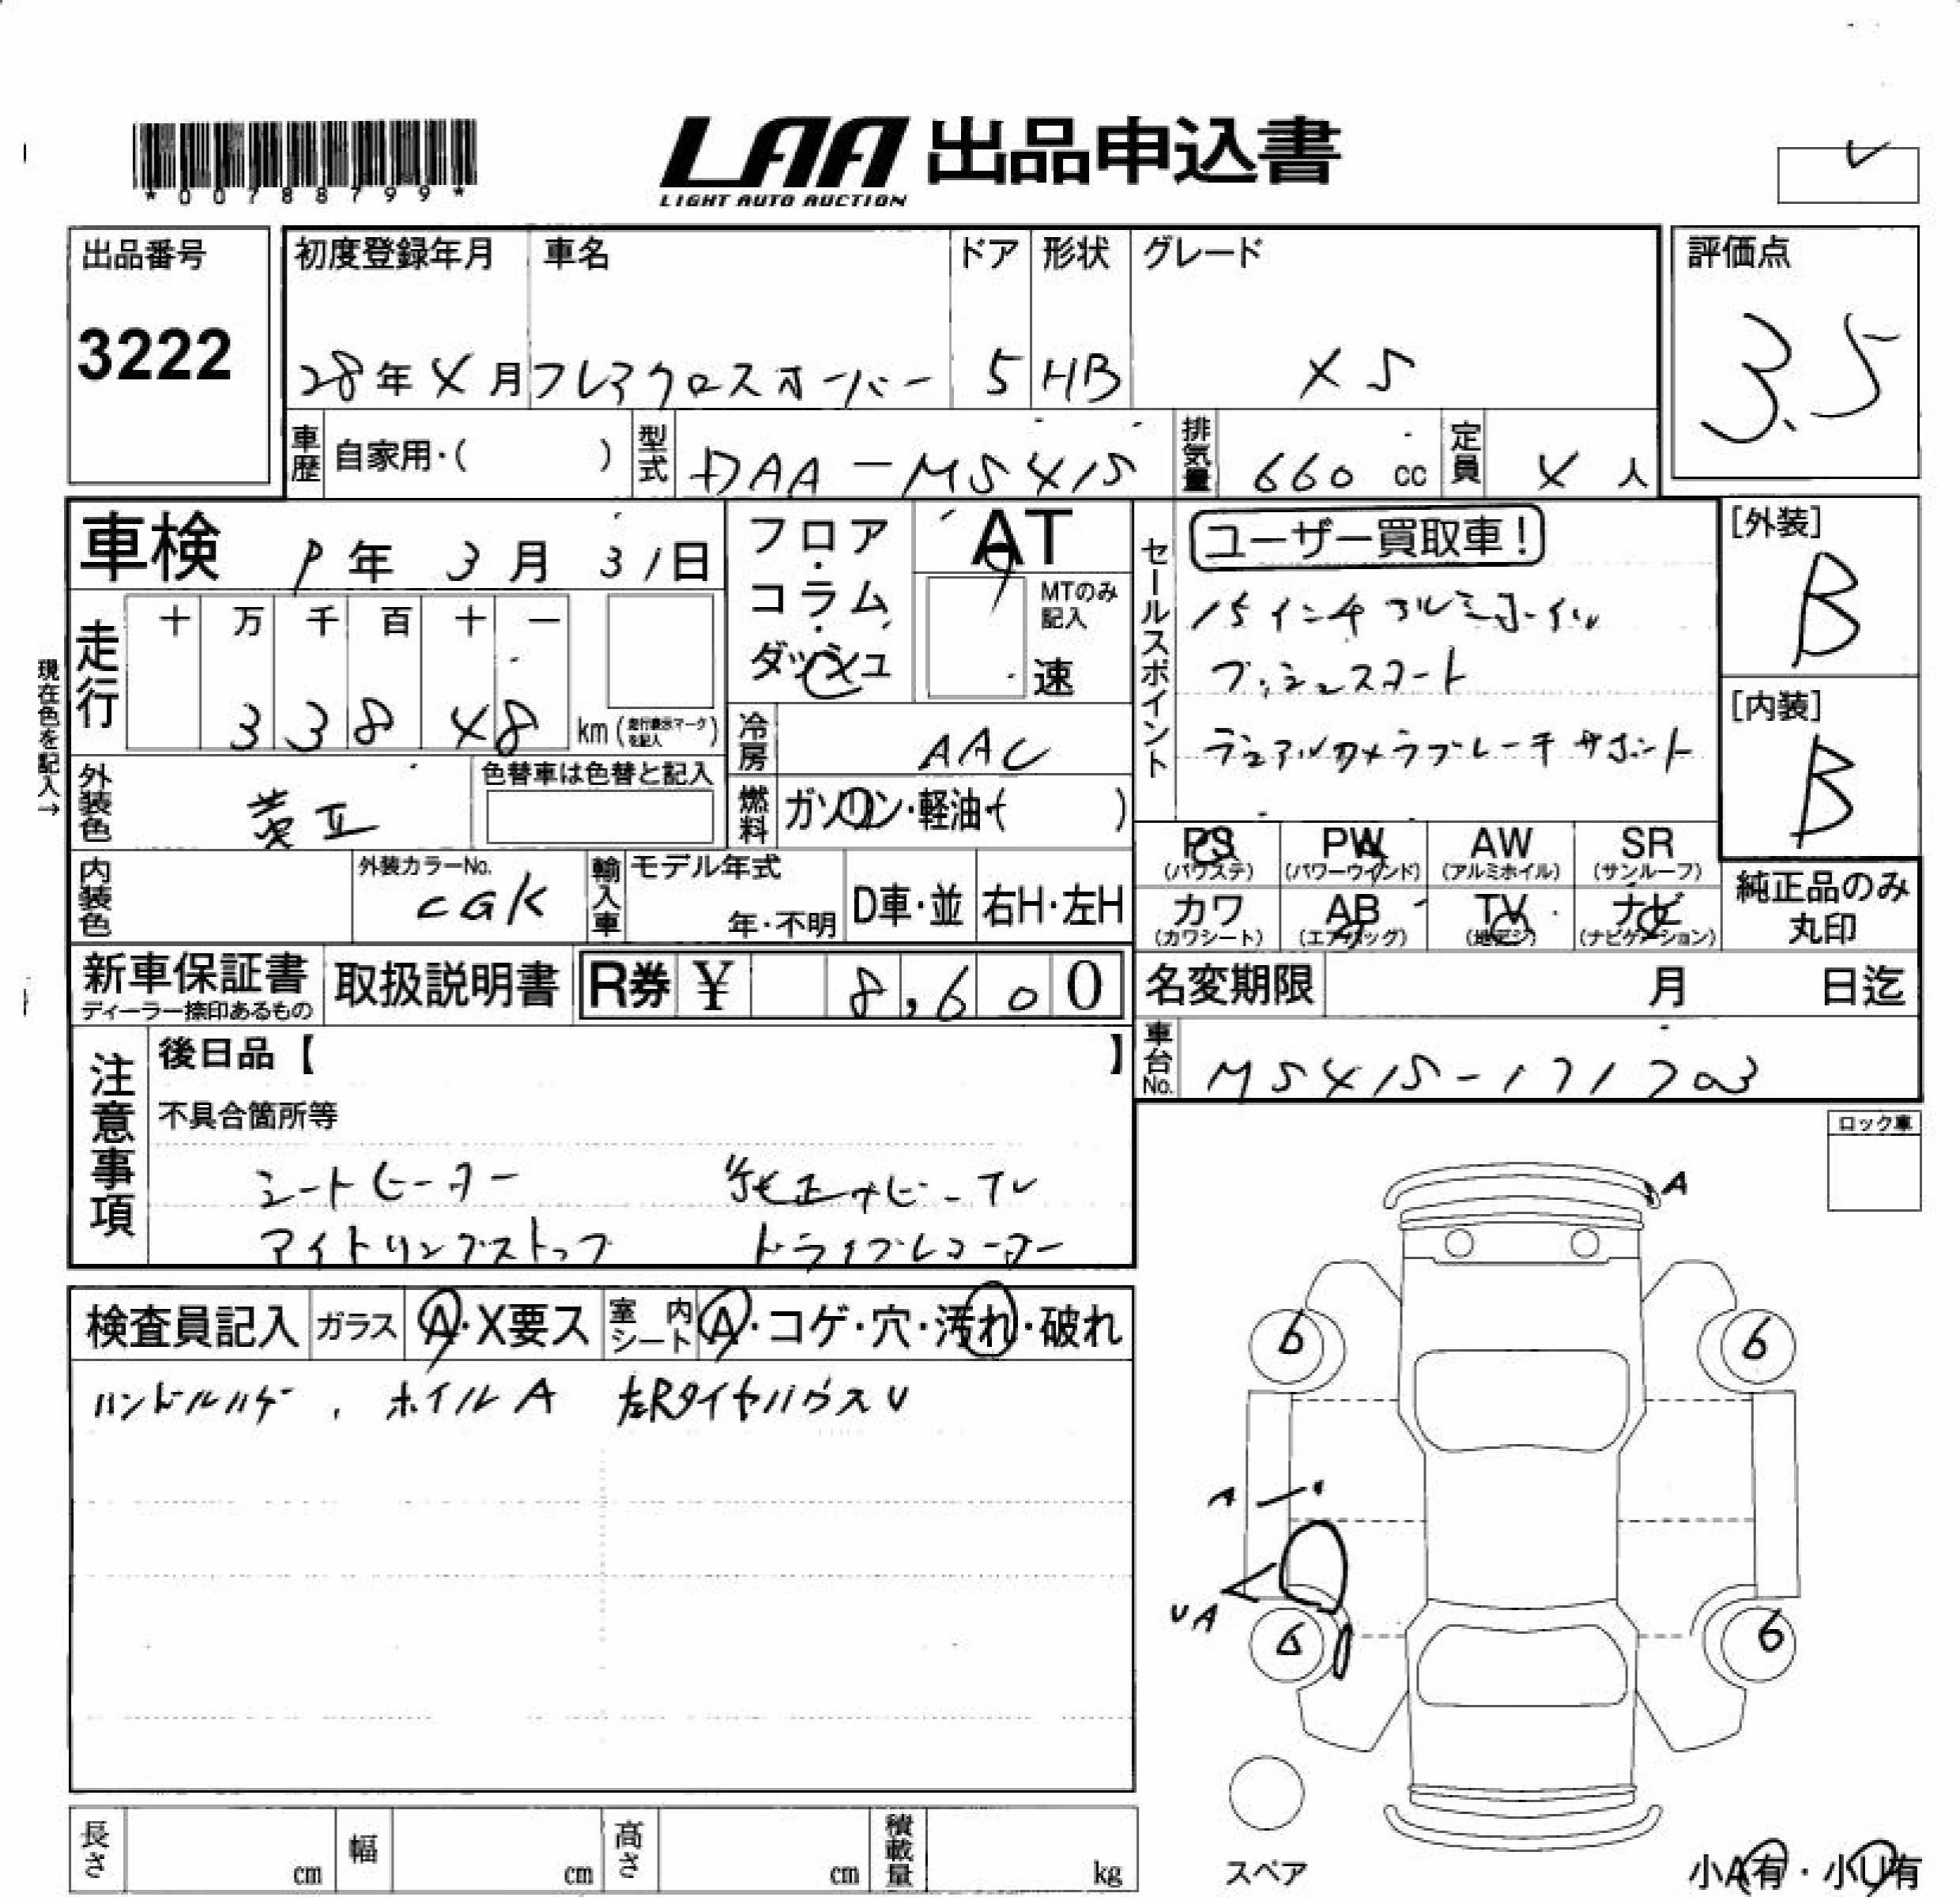 *00788799*
LAA 出品申込書
LIGHT AUTO AUCTION
出品番号
3222
初度登録年月 車名 ドア 形状 グレード
28年4月 フレアクロスオーバー 5 HB XS
評価点
3.5
車歴 自家用・( ) 型式 DAA-MS41S 排気量 660 cc 定員 4人
車検 9年3月31日
フロア・コラム・ダッシュ
AT
MTのみ記入
速
セールスポイント
ユーザー買取車!
15インチアルミホイル
プッシュスタート
デュアルカメラブレーキサポート
[外装]
B
[内装]
B
現在色を記入→
走行 十 万 千 百 十 一
33848 km (走行表示マークを記入)
冷房 AAC
外装色
色替車は色替と記入
燃料 ガソリン・軽油・( )
PS (パワステ) PW (パワーウィンド) AW (アルミホイル) SR (サンルーフ)
カワ (カワシート) AB (エアバッグ) TV (地デジ) ナビ (ナビゲーション)
純正品のみ丸印
内装色 外装カラーNo. CGK
輸入車 モデル年式 年・不明 D車・並 右H・左H
新車保証書
ディーラー捺印あるもの
取扱説明書 R券 ¥ 8,600
名変期限 月 日迄
車台No. MS41S-171703
注意事項
後日品【 】
不具合箇所等
シートヒーター 純正ナビ-TV
アイドリングストップ ドライブレコーダー
ロック車
検査員記入 ガラス A・X要ス 室内シート A・コゲ・穴・汚れ・破れ
ハンドルハゲ、ホイルA 左RタイヤハウスU
A
6 6
A
UA
6 6
スペア
小A有・小U有
長さ cm 幅 cm 高さ cm 積載量 kg